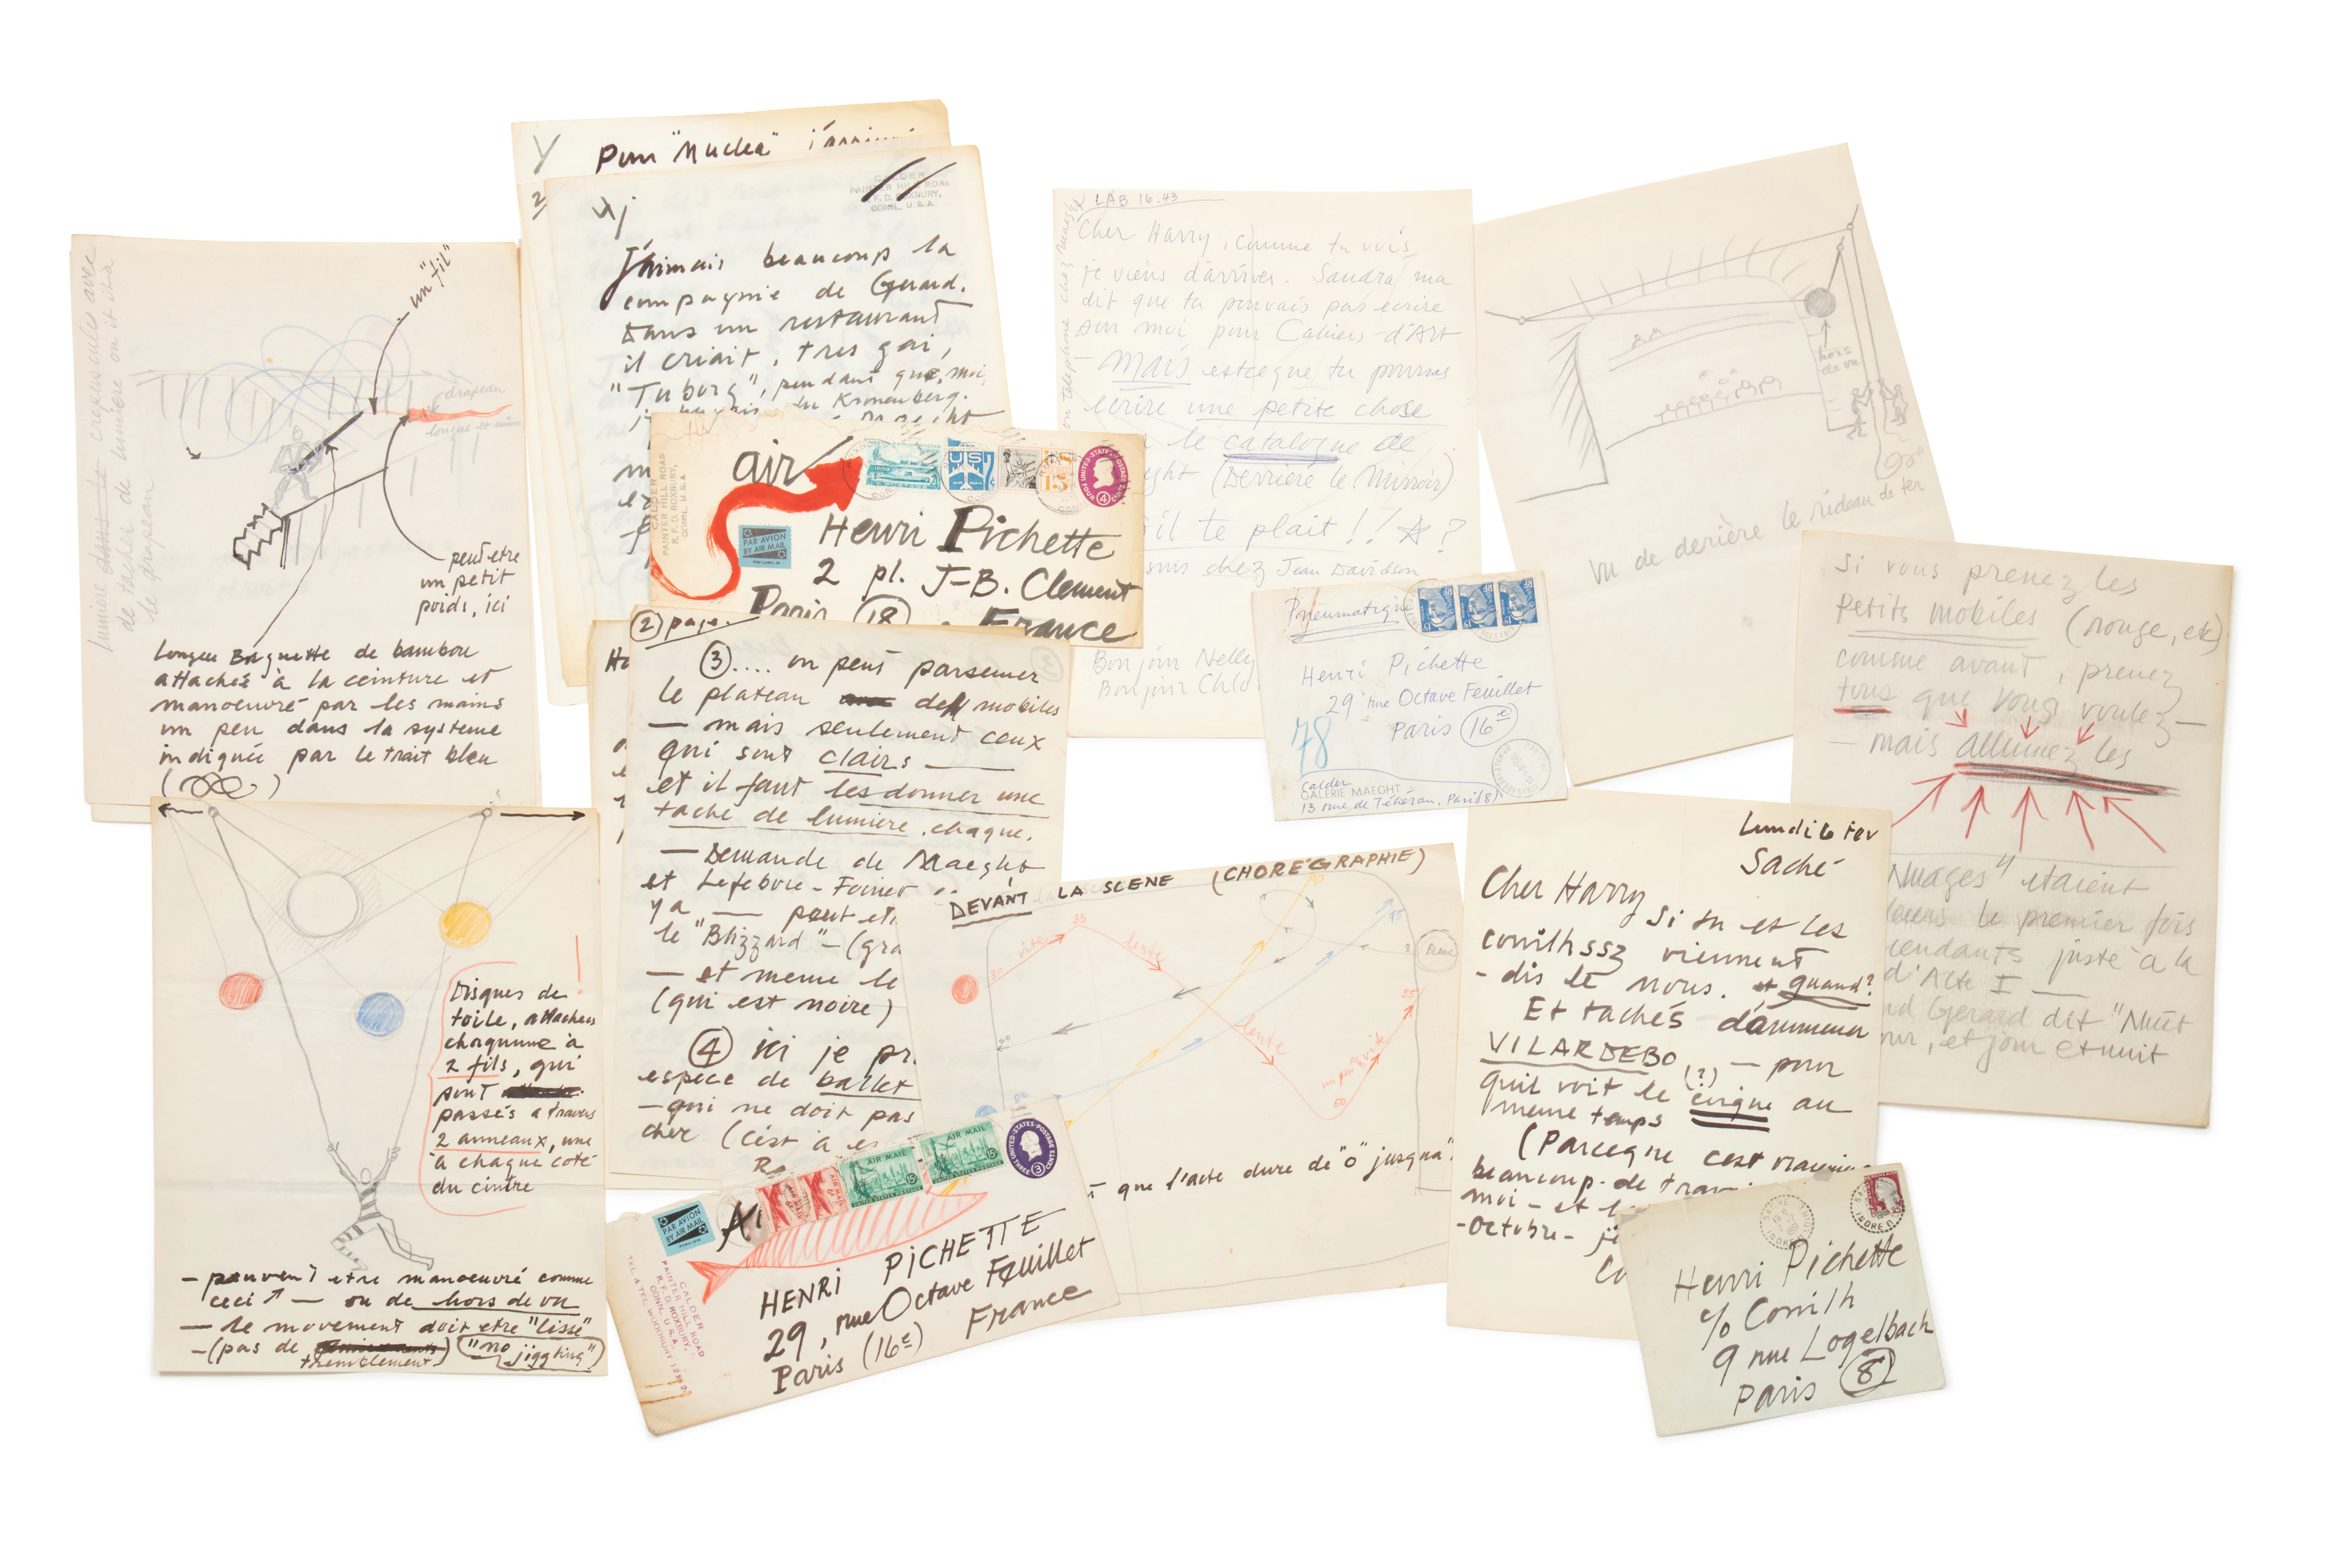 Y Pour "Nuclea" j'arrivai
2
4j
CALDER
PAINTER HILL ROAD
R.F.D. ROXBURY,
CONN. U.S.A.
J'aimais beaucoup la
compagnie de Gerard.
Dans un restaurant
il criait, tres gai,
"Tuborg", pendant que, moi,
du Kronenberg.
lumière crepuscules avec
de tacher de lumière ou it ira
le drapeau
un "fil"
drapeau
longue et
peut etre
un petit
poids, ici
Longue Baguette de bambou
attachée à la ceinture et
manoeuvré par les mains
un peu dans la systeme
indiquée par le trait bleu
Disques de
toile, attachees
chaqunne à
2 fils, qui
sont
passés a travers
2 anneaux, une
à chaque coté
du cintre
- peuvent etre manoeuvré comme
ceci ↗ — ou de hors de vu
— le movement doit etre "lissé"
- (pas de
tremblement) ("no
jiggling")
CALDER
PAINTER HILL ROAD
R.F.D. ROXBURY,
CONN. U.S.A
air
PAR AVION
BY AIR MAIL
US
AIR MAIL
UNITED STATES POSTAGE
FOUR 4 CENTS
15
Henri Pichette
2 pl. J-B. Clement
Paris (18)
France
2 page.
3 .... on peut parsemer
le plateau des mobiles
— mais seulement ceux
qui sont clairs —
et il faut les donner une
tache de lumière, chaque.
— Demande de Maeght
et Lefebvre-Foinet
y a — peut et
le "Blizzard" — (gra
— et meme le
(qui est noire)
4 ici je pr
espèce de ballet
- qui ne doit pas
cher (c'est à
LAB 16.43
on telephone chez Maeght
Cher Harry, comme tu vois
je viens d'arriver. Sandra ma
dit que tu pouvais pas ecrire
sur moi pour Cahiers-d'Art
— Mais estceque tu pourras
ecrire une petite chose
le catalogue de
ght (Derrière le Mirroir)
il te plait !! ☆ ?
suis chez Jean Davidson
Bonjoir Nelly
Bonjoir Chlo
Pneumatique
Henri Pichette
29 rue Octave Feuillet
Paris 16e
78
Calder
GALERIE MAEGHT
13 rue de Téhéran, Paris (8)
hors
de vu
vu de derière le rideau de fer
Si vous prenez les
Petits mobiles (rouge, etc)
comme avant, prenez
tous que vous voulez —
— mais allumez les
Nuages" etaient
le premier fois
cendants juste à la
d'Acte I —
Gerard dit "Nuit
our, et jour et nuit
DEVANT LA SCENE (CHOREGRAPHIE)
vite
lente
lente
un peu vite
30
35
50
55
20
45
Blanc
que l'acte dure de "0" jusqua"
Lundi 6 fev
Saché
Cher Harry
Si tu et les
viennent
- dis le nous. et quand?
Et tachés d'ammener
VILARDEBO (?) — pour
quil voit le cirque au
meme temps
(Parceque c'est
beaucoup de
moi - et
- Octobre -
PAR AVION
BY AIR MAIL
AIR MAIL
AIR MAIL
AIR MAIL
15
15
UNITED STATES POSTAGE
THREE 3 CENTS
CALDER
PAINTER HILL ROAD
R.F.D. ROXBURY,
CONN. U.S.A.
HENRI PICHETTE
29, rue Octave Feuillet
Paris (16e) France
Henri Pichette
c/o Cornilh
9 rue Logelbach
Paris 8